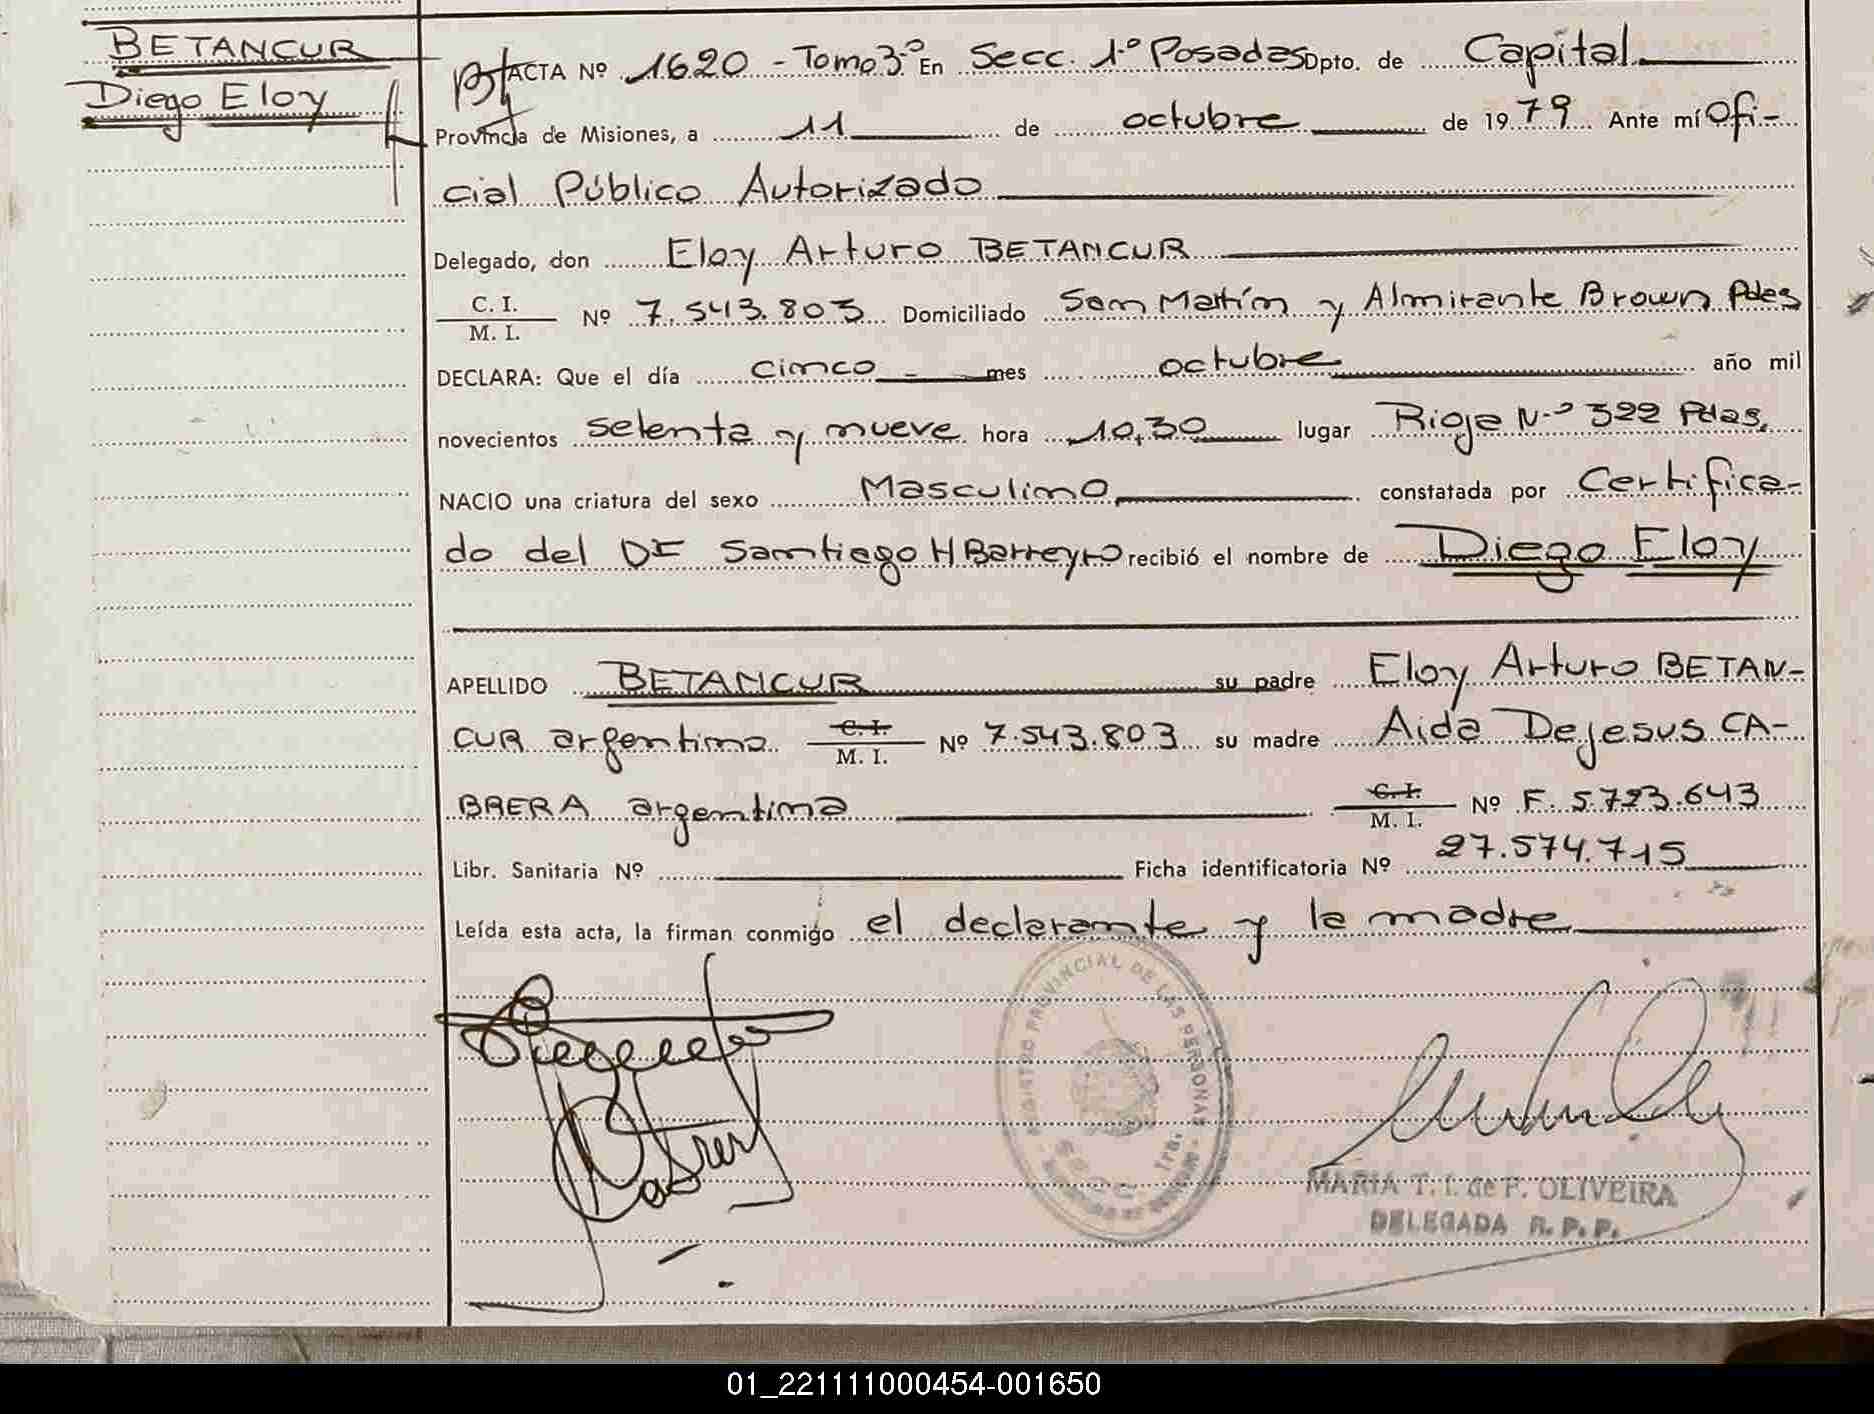 BETANCUR
Diego Eloy
ACTA Nº 1620 - Tomo 3º En Secc. 1º Posadas Dpto. de Capital
Provincia de Misiones, a 11 de octubre de 1979 Ante mí Ofi-
cial Público Autorizado
Delegado, don Eloy Arturo BETANCUR
C. I.
M. I. Nº 7.543.803 Domiciliado San Martín y Almirante Brown Pdas
DECLARA: Que el día cinco mes octubre año mil
novecientos setenta y nueve hora 10,30 lugar Rioja Nº 322 Pdas.
NACIO una criatura del sexo Masculino constatada por Certifica-
do del Dr Santiago H Barreyro recibió el nombre de Diego Eloy
APELLIDO BETANCUR su padre Eloy Arturo BETAN-
CUR argentino C. I. M. I. Nº 7.543.803 su madre Aida Dejesus CA-
BRERA argentina C. I. M. I. Nº F. 5.723.643
Libr. Sanitaria Nº Ficha identificatoria Nº 27.574.715
Leída esta acta, la firman conmigo el declarante y la madre
REGISTRO PROVINCIAL DE LAS PERSONAS
SECC. 1ra.
MARIA T. I. de F. OLIVEIRA
DELEGADA R. P. P.
01_221111000454-001650